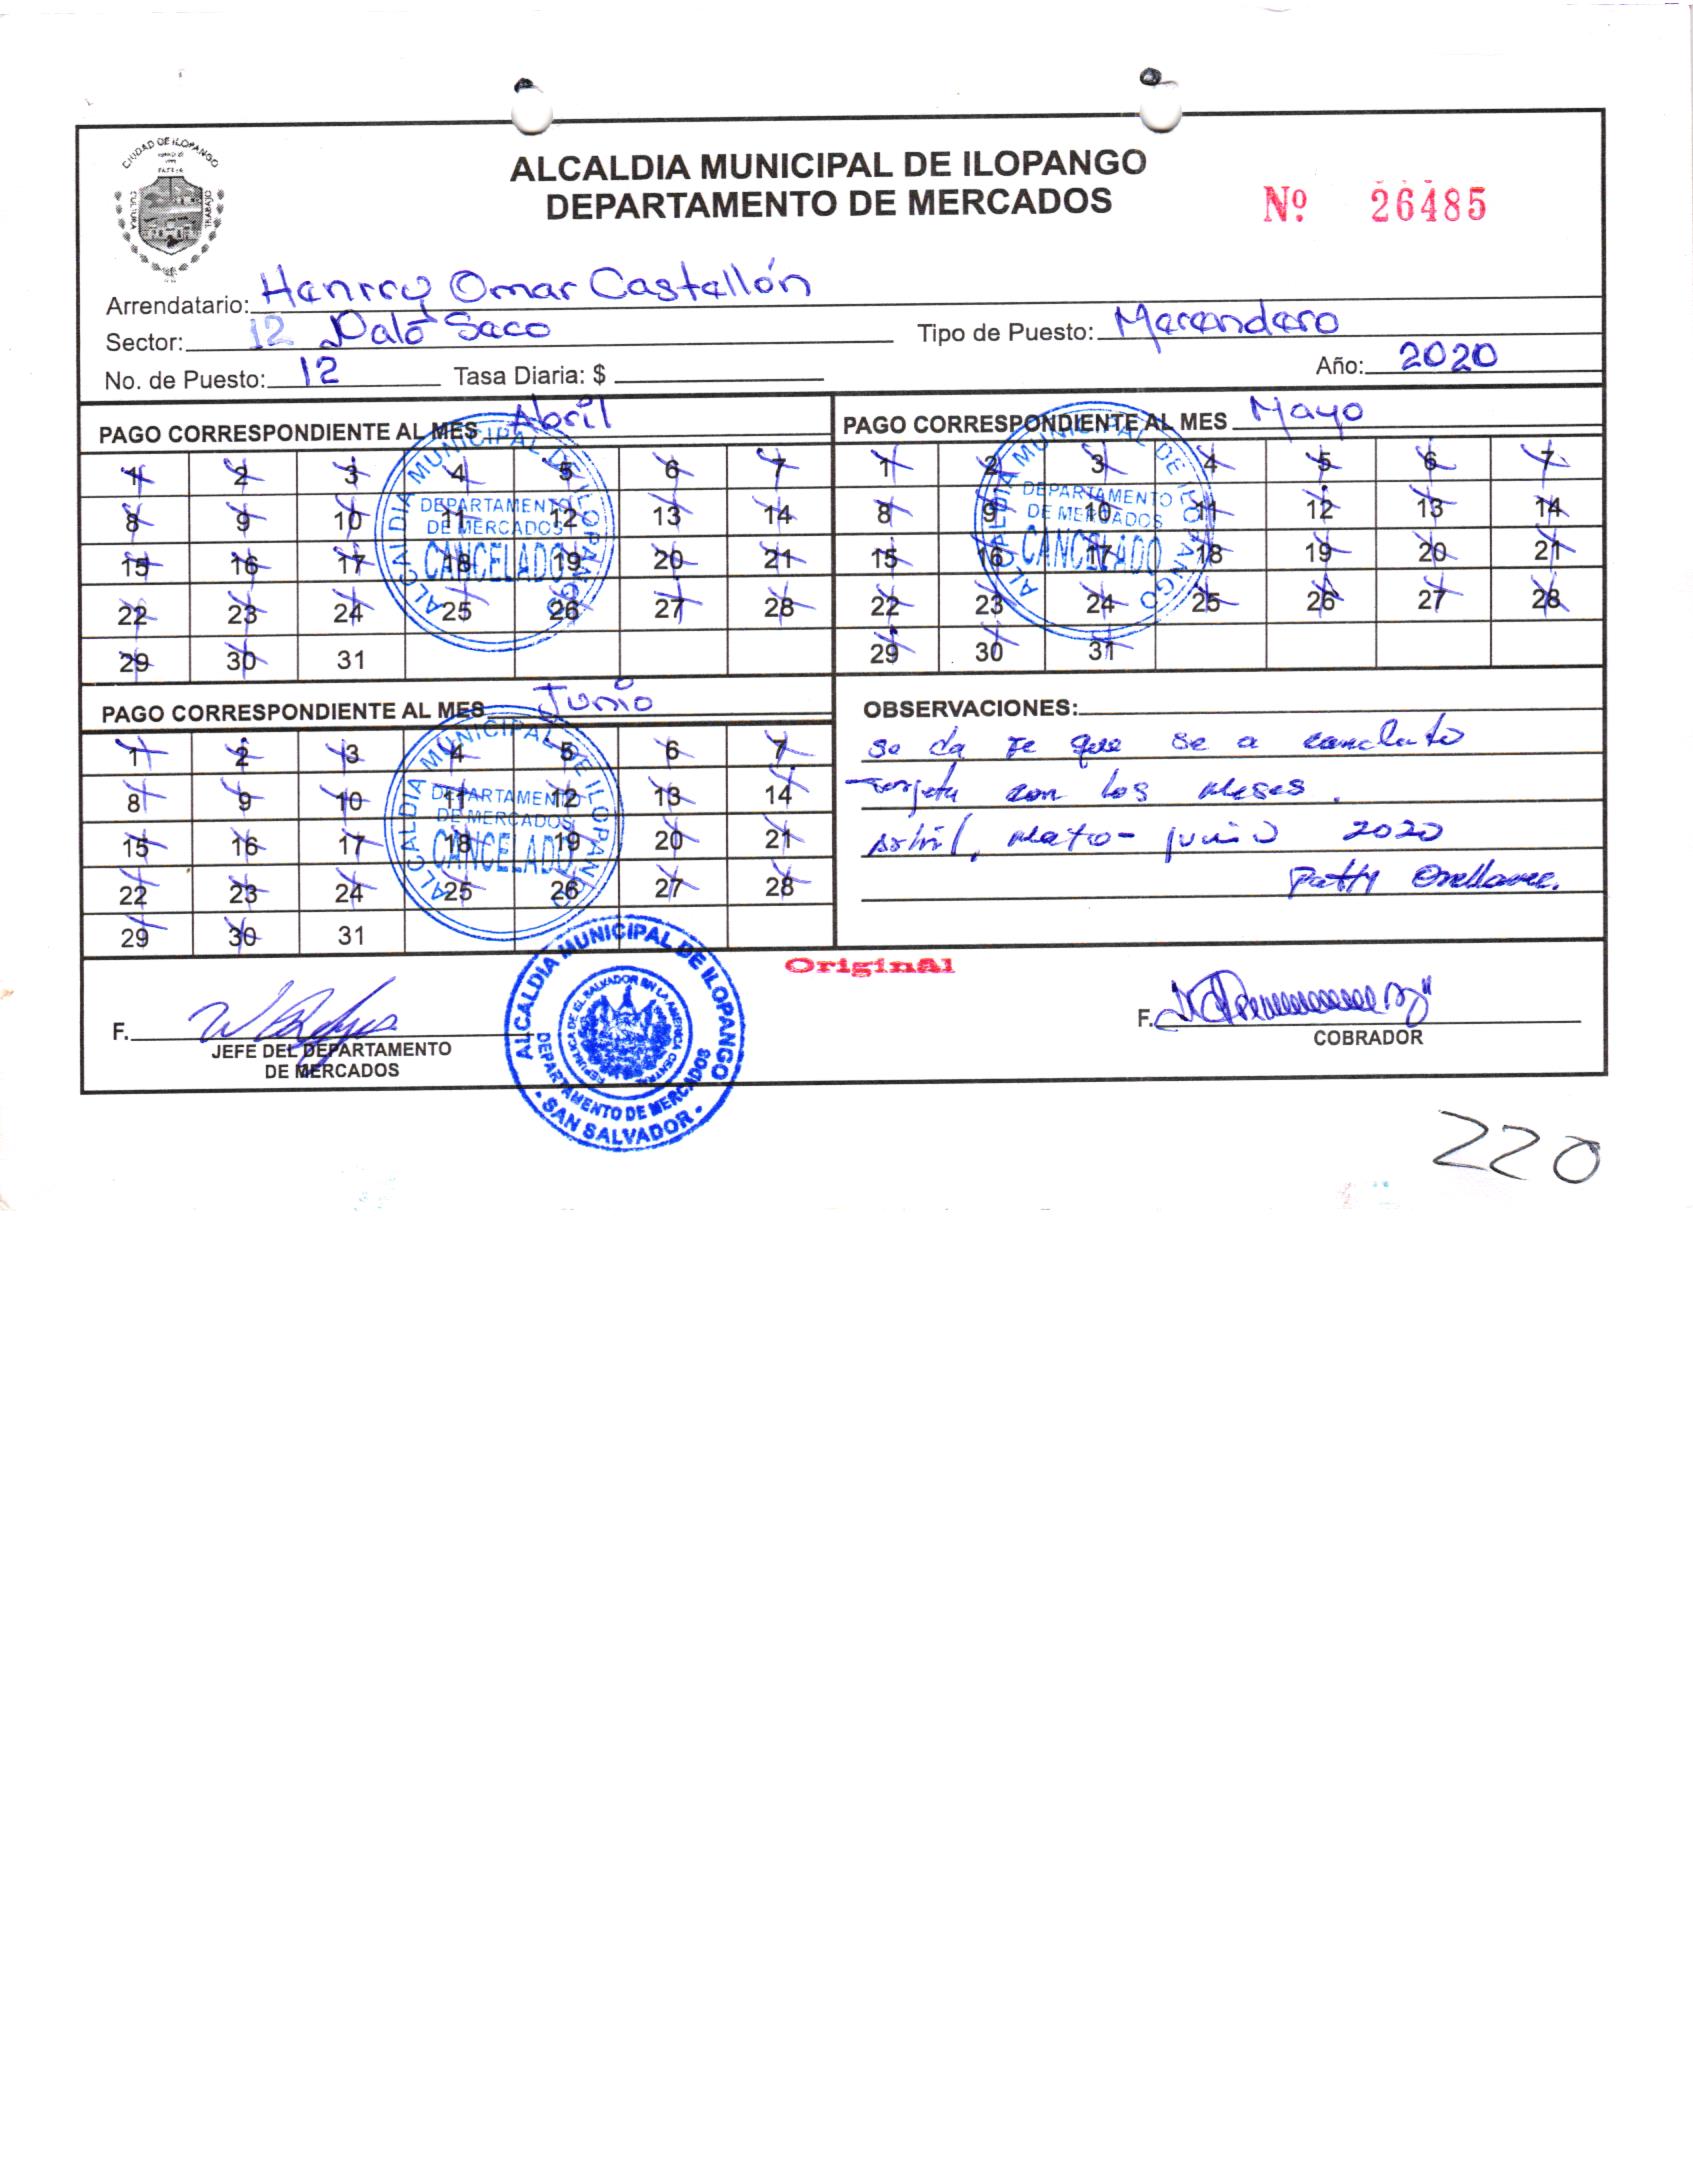 CIUDAD DE ILOPANGO
CULTURA
TRABAJO
ALCALDIA MUNICIPAL DE ILOPANGO
DEPARTAMENTO DE MERCADOS
Nº 26485
Arrendatario: Henrry Omar Castellón
Sector: 12 Palo Saco
Tipo de Puesto: Merendero
No. de Puesto: 12 Tasa Diaria: $
Año: 2020
PAGO CORRESPONDIENTE AL MES Abril
1 2 3 4 5 6 7
8 9 10 11 12 13 14
15 16 17 18 19 20 21
22 23 24 25 26 27 28
29 30 31
ALCALDIA MUNICIPAL DE ILOPANGO
DEPARTAMENTO
DE MERCADOS
CANCELADO
PAGO CORRESPONDIENTE AL MES Mayo
1 2 3 4 5 6 7
8 9 10 11 12 13 14
15 16 17 18 19 20 21
22 23 24 25 26 27 28
29 30 31
ALCALDIA MUNICIPAL DE ILOPANGO
DEPARTAMENTO
DE MERCADOS
CANCELADO
PAGO CORRESPONDIENTE AL MES Junio
1 2 3 4 5 6 7
8 9 10 11 12 13 14
15 16 17 18 19 20 21
22 23 24 25 26 27 28
29 30 31
ALCALDIA MUNICIPAL DE ILOPANGO
DEPARTAMENTO
DE MERCADOS
CANCELADO
OBSERVACIONES:
se da fe que se a
tarjeta con los meses.
Abril, junio 2020
Patty Orellana.
Original
F.
JEFE DEL DEPARTAMENTO
DE MERCADOS
ALCALDIA MUNICIPAL DE ILOPANGO
REPUBLICA DE EL SALVADOR EN LA AMERICA CENTRAL
DEPARTAMENTO DE MERCADOS
- SAN SALVADOR -
F.
COBRADOR
220